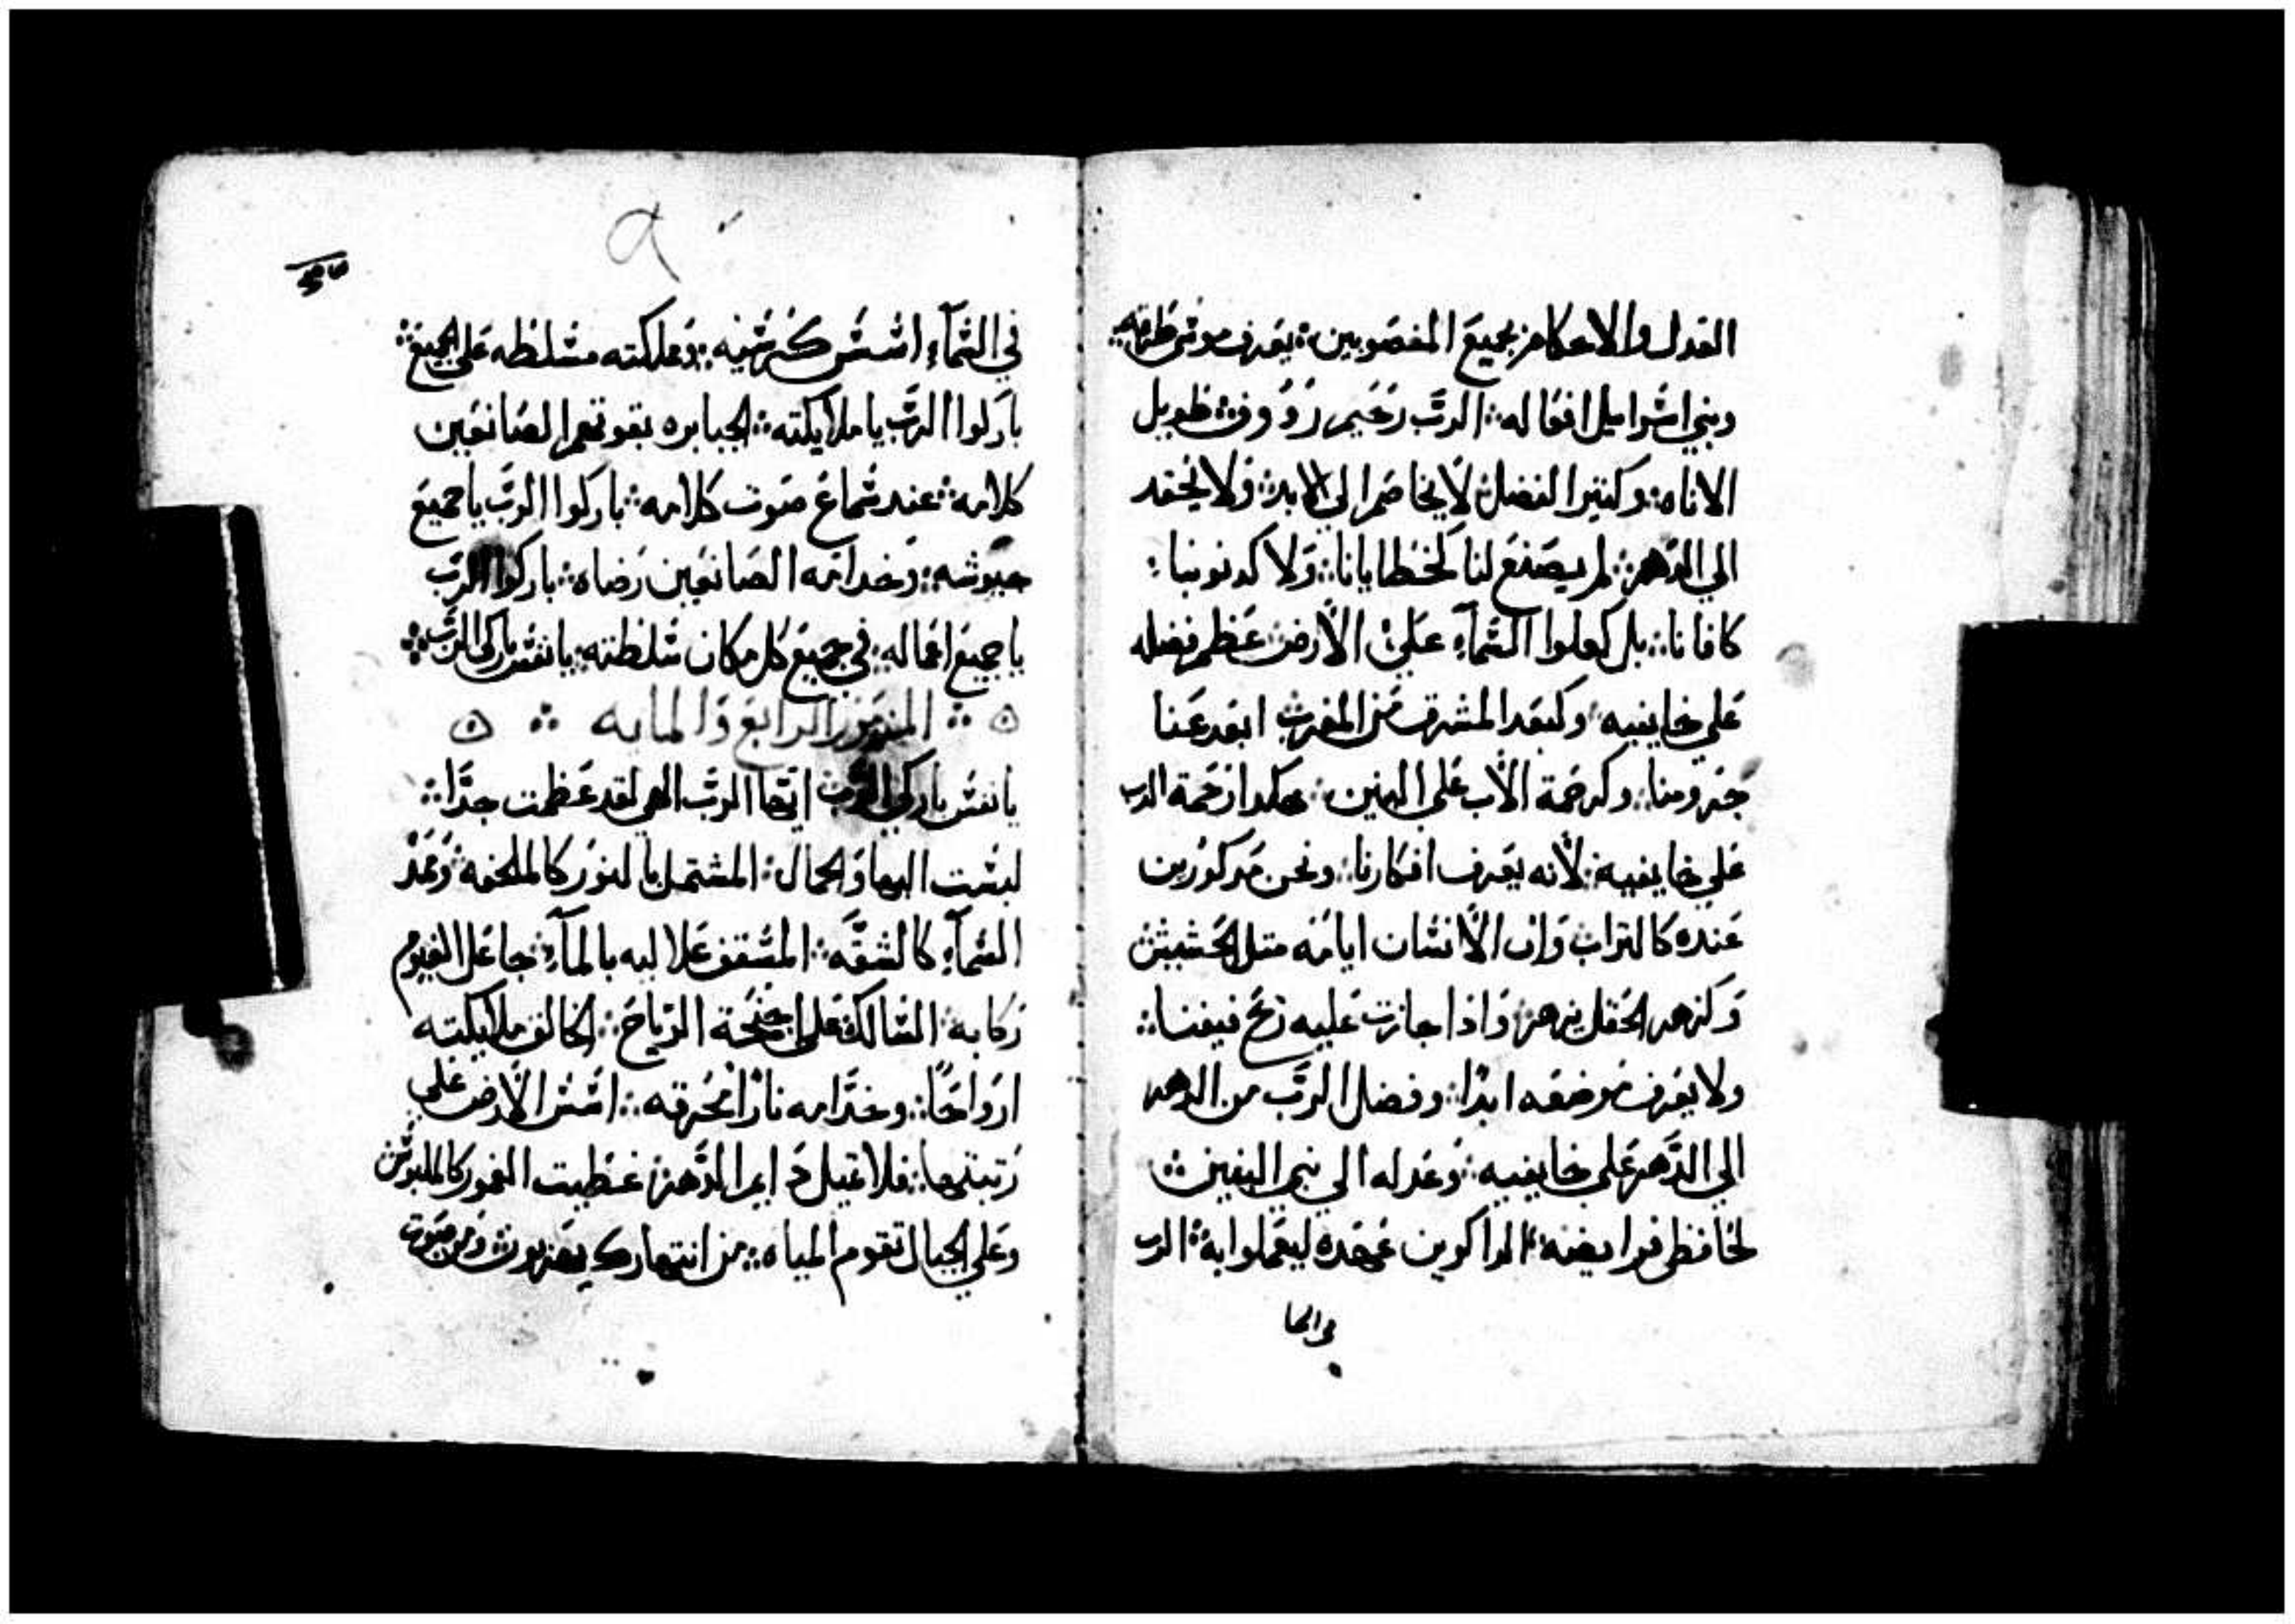 العدل والاحكام بجميع المغصوبين ∴ يعرف موسى طرقه ∴
وبني اسراييل افعاله ∴ الرب رحيم رووف ∴ طويل
الاناه ∴ وكثير الفضل لا يخاصم الي الابد ∴ ولا يحقد
الي الدهر ∴ لم يصنع لنا كخطايانا ∴ ولا كدنوبنا ∴
كافانا ∴ بل كعلوا السمآء علي الأرض عظم فضله
علي خايفيه وكبعد المشرق من المغرب ابعد عنا
جرومنا ∴ وكرحمة الأب علي البنين ∴ هكدا رحمة الرب
علي خايفيه ∴ لأنه يعرف افكارنا ∴ ونحن مدكورين
عنده كالتراب وان الأنسان ايامه متل الحشيش
وكزهر الحقل يزهر ∴ واذا جازت عليه ريح فيفنا ∴
ولا يعرف موضعه ابدًا ∴ وفضل الرب من الدهر
الي الدهر علي خايفيه ∴ وعدله الي بني البنين ∴
لحافظي فرايضه ∴ الداكرين عهده ليعملوا به ∴ الرب
في السما
في السمآء اسس كرسيه ∴ ومملكته مسلطه علي الجميع ∴
باركوا الرب يا ملايكته ∴ الجبابره بقوتهم الصانعين
كلامه ∴ عند سماع صوت كلامه ∴ باركوا الرب يا جميع
جيوشه ∴ وخدامه الصانعين رضاه ∴ باركوا الرب
يا جميع اعماله ∴ في جميع كل مكان سلطته ∴ يا نفس باركي الرب ∴
∴ المزمور الرابع والمايه ∴
يا نفس باركي الرب ايها الرب الهي لقد عظمت جدًا ∴
لبست البها والجمال ∴ المشتمل بالنور كالملحفه ∴ ومد
السمآء كالشقه ∴ المسقف علاليه بالمآء ∴ جاعل الغيوم
ركابه ∴ السالك علي اجنحة الرياح ∴ الخالق ملايكته
ارواحًا ∴ وخدامه نارًا محرقه ∴ اسس الأرض علي
رتبتها ∴ فلا تميل دايم الدهر ∴ غطيت الغمور كاللبوس
وعلي الجبال تقوم المياه ∴ من انتهارك يهربون ∴ ومن صوت